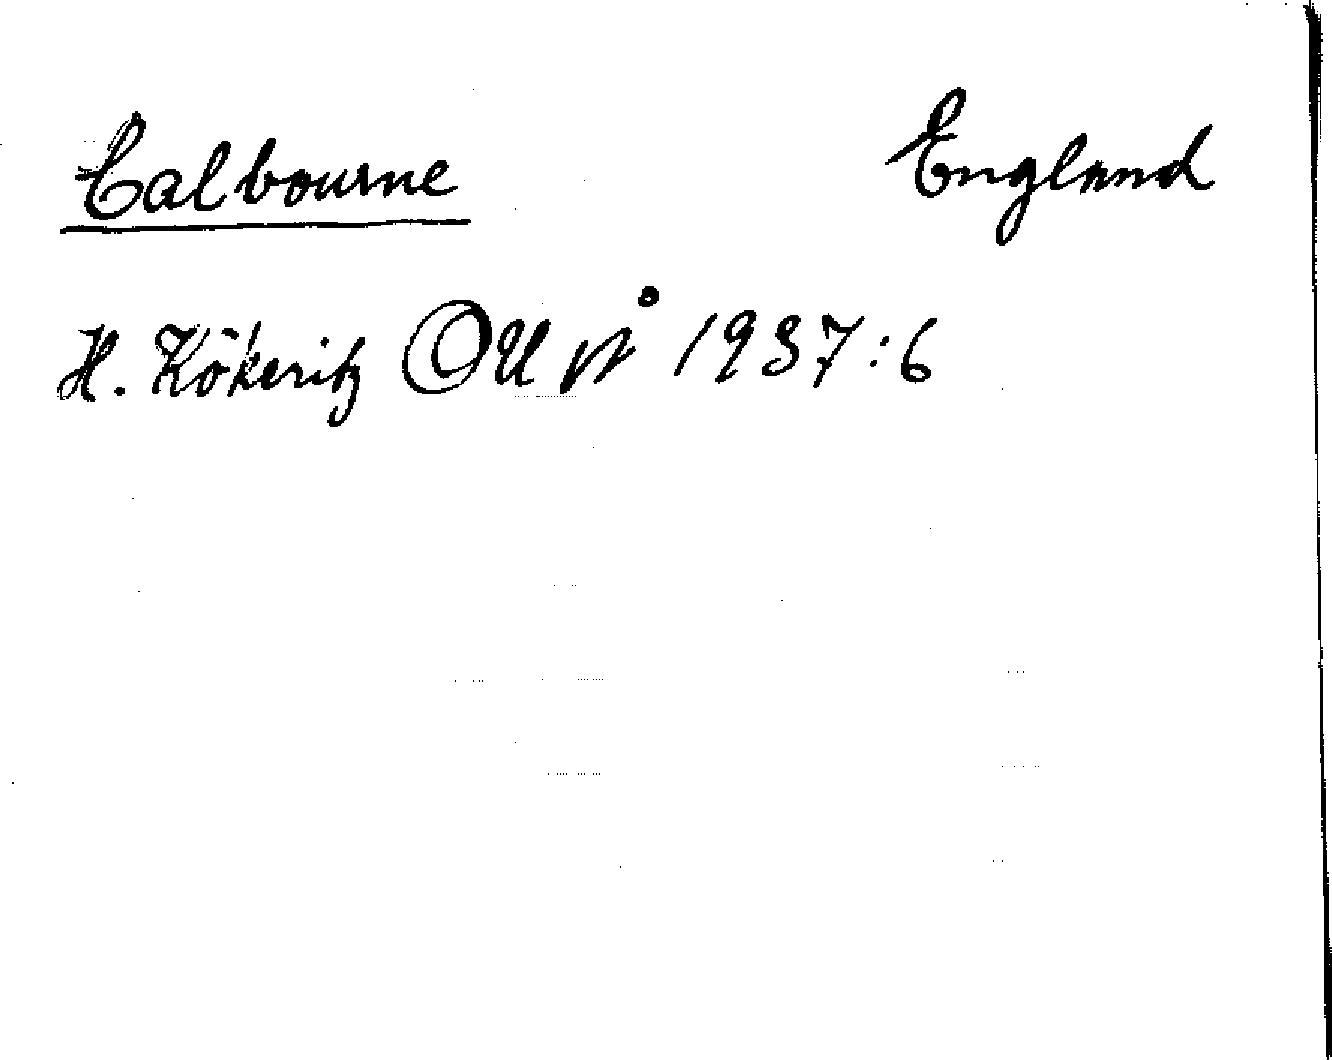 Calbourne England
H. Kökeritz OUÅ 1937:6